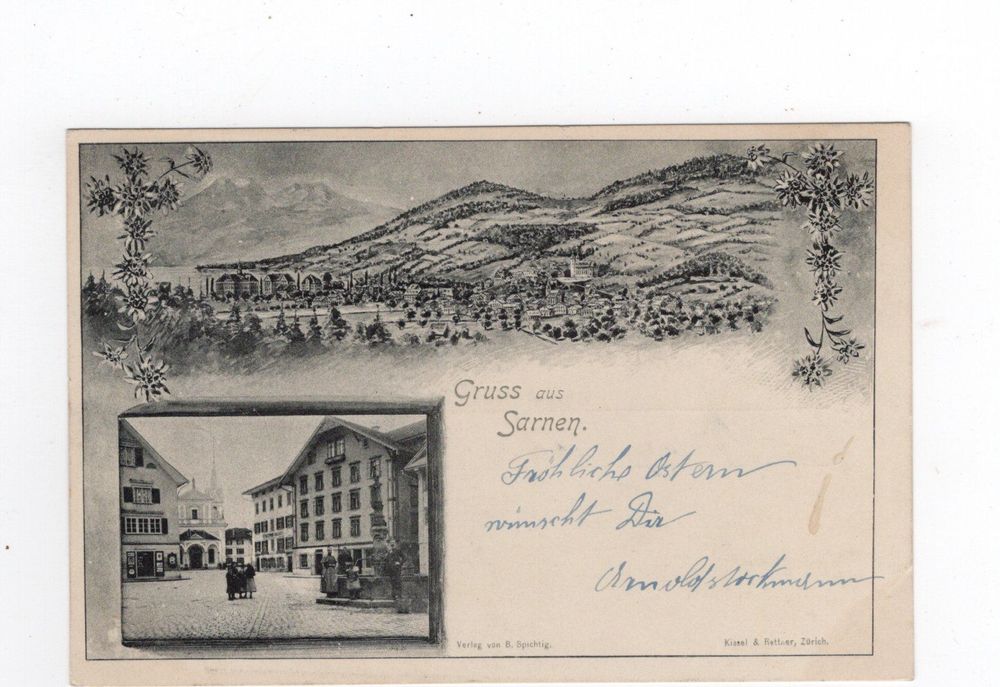 Gruss aus
Sarnen.
Fröhliche Ostern
wünscht Dir
Arnold Stockmann
Verlag von B. Spichtig.
Kissel & Rettner, Zürich.